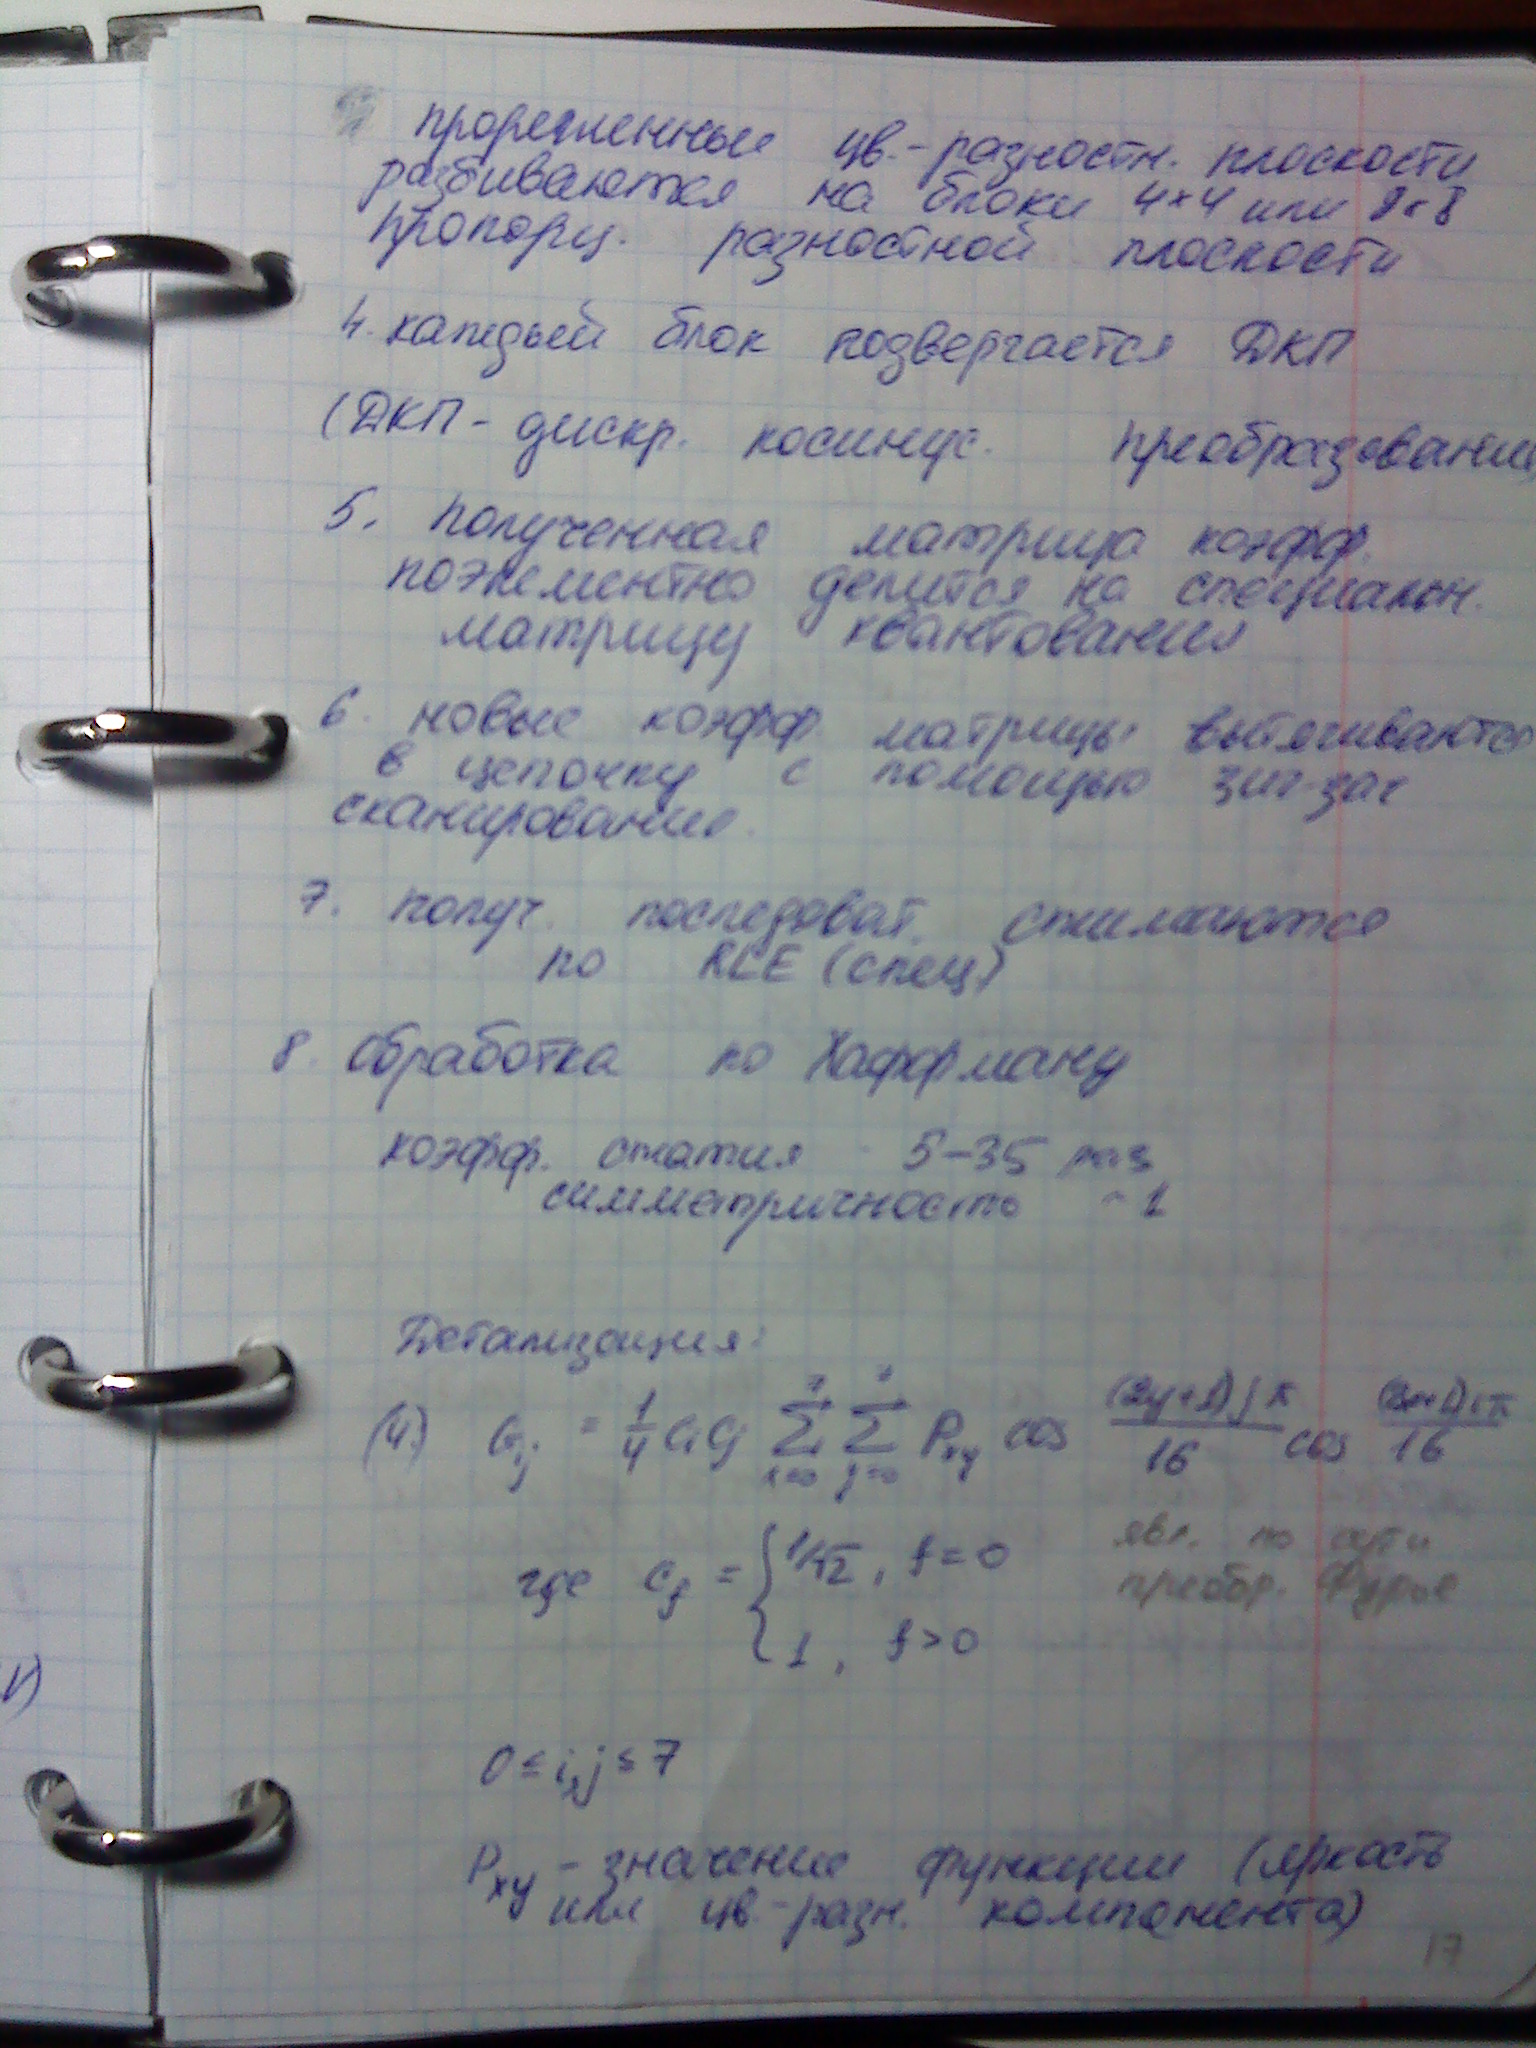 прореженные цв.-разностн. плоскости
разбиваются на блоки 4×4 или 8×8
пропорц. разностной плоскости
4. каждый блок подвергается ДКП
(ДКП - дискр. косинус. преобразование
5. полученная матрица коэфф.
поэлементно делится на специальн.
матрицу квантования
6. новые коэфф. матрицы вытягиваются
в цепочку с помощью зиг-заг
сканирование.
7. получ. последоват. сжимаются
по RLE (спец)
8. обработка по Хаффману
коэфф. сжатия 5-35 раз
симметричность ~1
Детализация:
(4.) Gij = 1/4 Ci Cj Σ(x=0..7) Σ(y=0..7) Pxy cos (2y+1)jπ/16 cos (2x+1)iπ/16
где Cf = { 1/√2, f=0
явл. по сути
преобр. Фурье
1, f>0
0 ≤ i,j ≤ 7
Pxy - значение функции (яркость
или цв.-разн. компонента)
17